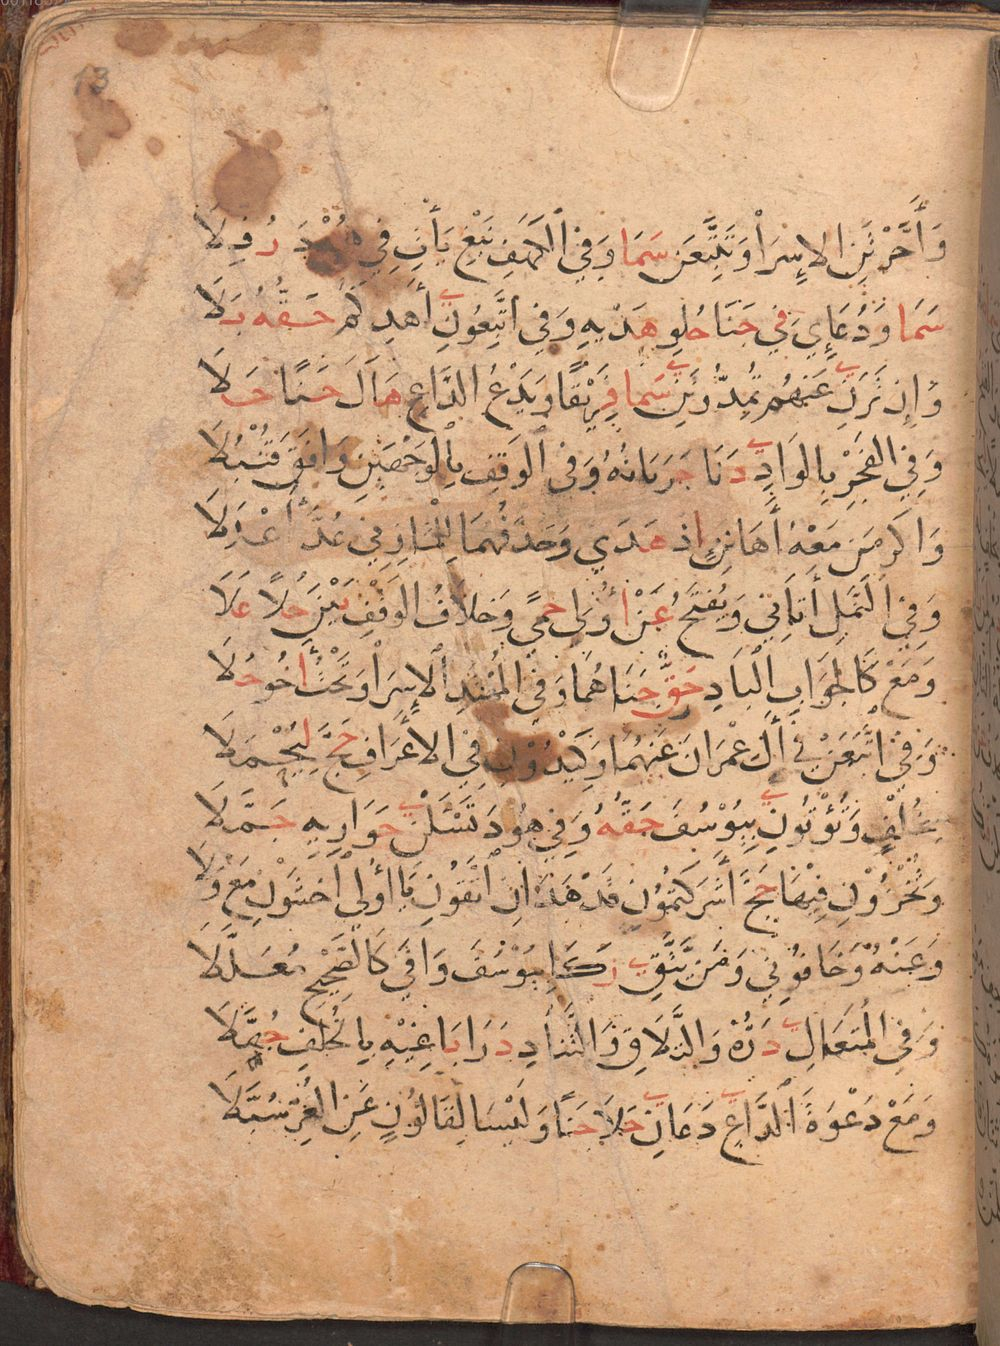 13
وَأَخَّرْتَنِ الإِسْرَا وَتَتَّبِعَنْ سَمَا وَفِي الْكَهْفِ نَبْغِي يَأْتِ فِي هُودَ رُفِّلَا
سَمَا وَدُعَاءِي فِي جَنَا حُلْوِ هَدْيِهِ وَفِي اتَّبِعُونِ أَهْدِكُمْ حَقُّهُ بَلَا
وَإِن تَرَنِ عَنْهُمْ تُمِدُّونَنِ سَمَا فَرِيقًا وَيَدْعُ الدَّاعِ هَاكَ جَنًا حَلَا
وَفِي الفَجْرِ بِالوَادِ دَنَا جَرَيَانُهُ وَفِي الوَقْفِ بِالوَجْهَيْنِ وَافَقَ قُنْبُلَا
وَأَكْرَمَنِ مَعْهُ أَهَانَنِ إِذْ هَدَى وَحَذْفُهُمَا لِلْمَازِنِي عُدَّ أَعْدَلَا
وَفِي النَّمْلِ أَتَانِي وَيُفْتَحُ عَنْ أُولِي حِمًى وَخِلَافُ الوَقْفِ بَيْنَ حُلًا عَلَا
وَمَعْ كَالجَوَابِ البَادِ حَقَّ جَنَاهُمَا وَفِي المُهْتَدِ الإِسْرَا وَتَحْتُ أَخُو حُلَا
وَفِي اتَّبَعَنْ فِي آلَ عِمْرَانَ عَنْهُمَا وَكِيدُونِ فِي الأَعْرَافِ حَجَّ لِيُحْمَلَا
بِخُلْفٍ وَتُؤْتُونِ بِيُوسُفَ حَقُّهُ وَفِي هُودَ تَسْأَلْنِ حَوَارِيهِ جَمَّلَا
وَتُخْزُونِ فِيهَا حَجَّ أَشْرَكْتُمُونِ قَدْ هَدَانِ اتَّقُونِ يَا أُولِي اخْشَوْنِ مَعْ وَلَا
وَعَنْهُ وَخَافُونِي وَمَنْ يَتَّقِ زَكَا بِيُوسُفَ وَافَى كَالصَّحِيحِ مُعَلَّلَا
وَفِي المُتَعَالِ دَرُّهُ وَالتَّلَاقِ وَالتَّنَادِ دَرَا بَاغِيهِ بِالْخُلْفِ جُهَّلَا
وَمَعْ دَعْوَةَ الدَّاعِ دَعَانِ حَلَا جَنًا وَلَيْسَا لِقَالُونٍ عَنِ الغُرِّ سُبَّلَا